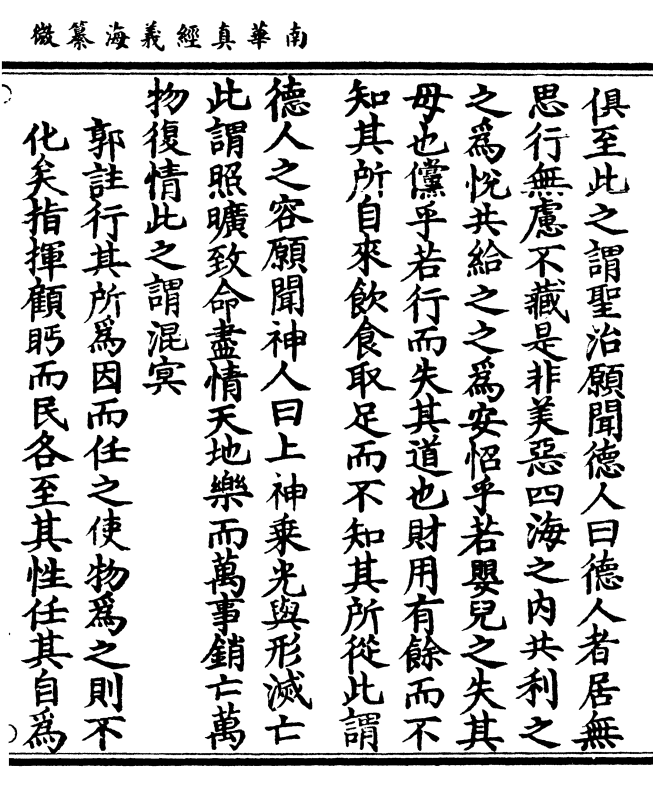 南華真經義海纂微
俱至此之謂聖治願聞德人曰德人者居無
思行無慮不藏是非美惡四海之內共利之
之爲悅共給之之爲安怊乎若嬰兒之失其
母也儻乎若行而失其道也財用有餘而不
知其所自來飲食取足而不知其所從此謂
德人之容願聞神人曰上神乗光與形滅亡
此謂照曠致命盡情天地樂而萬事銷亡萬
物復情此之謂混㝠
郭註行其所爲因而任之使物爲之則不
化矣指揮顧眄而民各至其性任其自爲